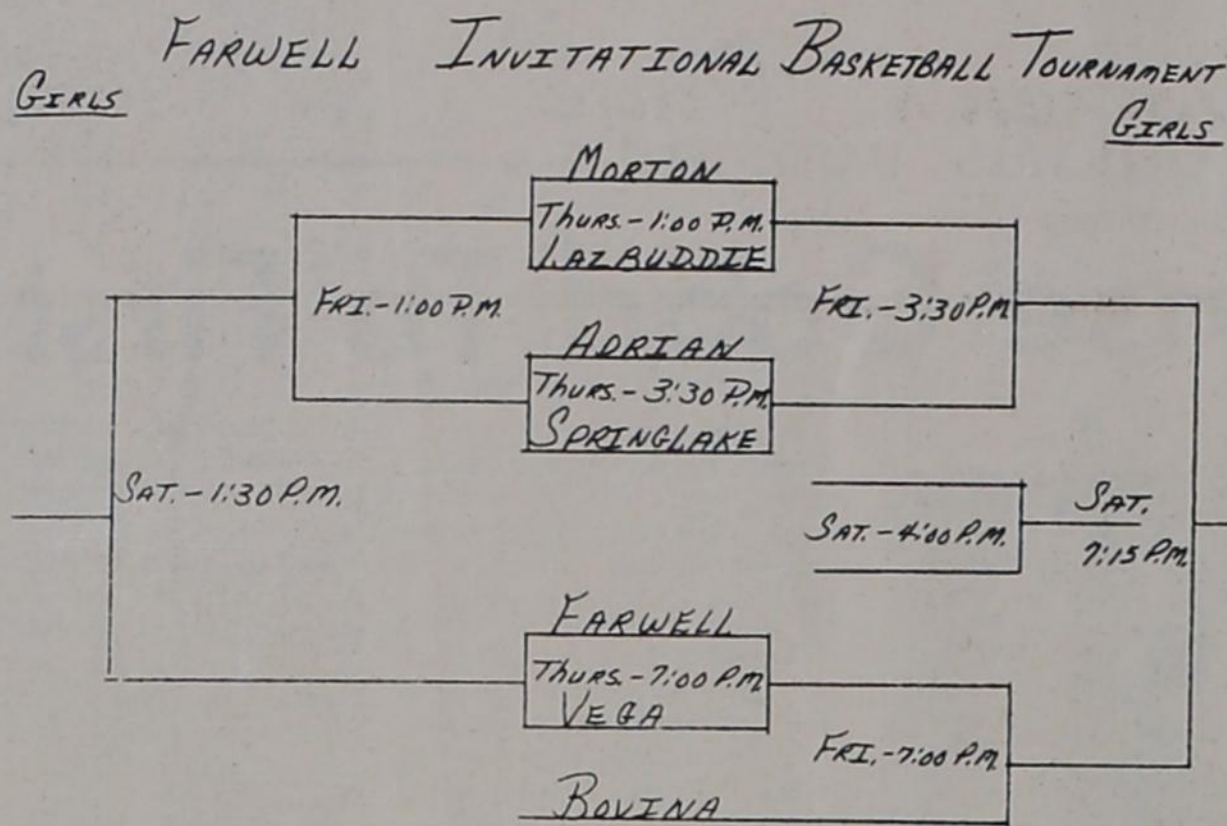 FARWELL INVITATIONAL BASKETBALL TOURNAMENT
GIRLS
GIRLS
MORTON
THURS. - 1:00 P.M.
LAZBUDDIE
FRI. - 1:00 P.M.
FRI. - 3:30 P.M.
ADRIAN
THURS. - 3:30 P.M.
SPRINGLAKE
SAT. - 1:30 P.M.
SAT. - 4:00 P.M.
SAT.
7:15 P.M.
FARWELL
THURS. - 7:00 P.M.
VEGA
FRI. - 7:00 P.M.
BOVINA